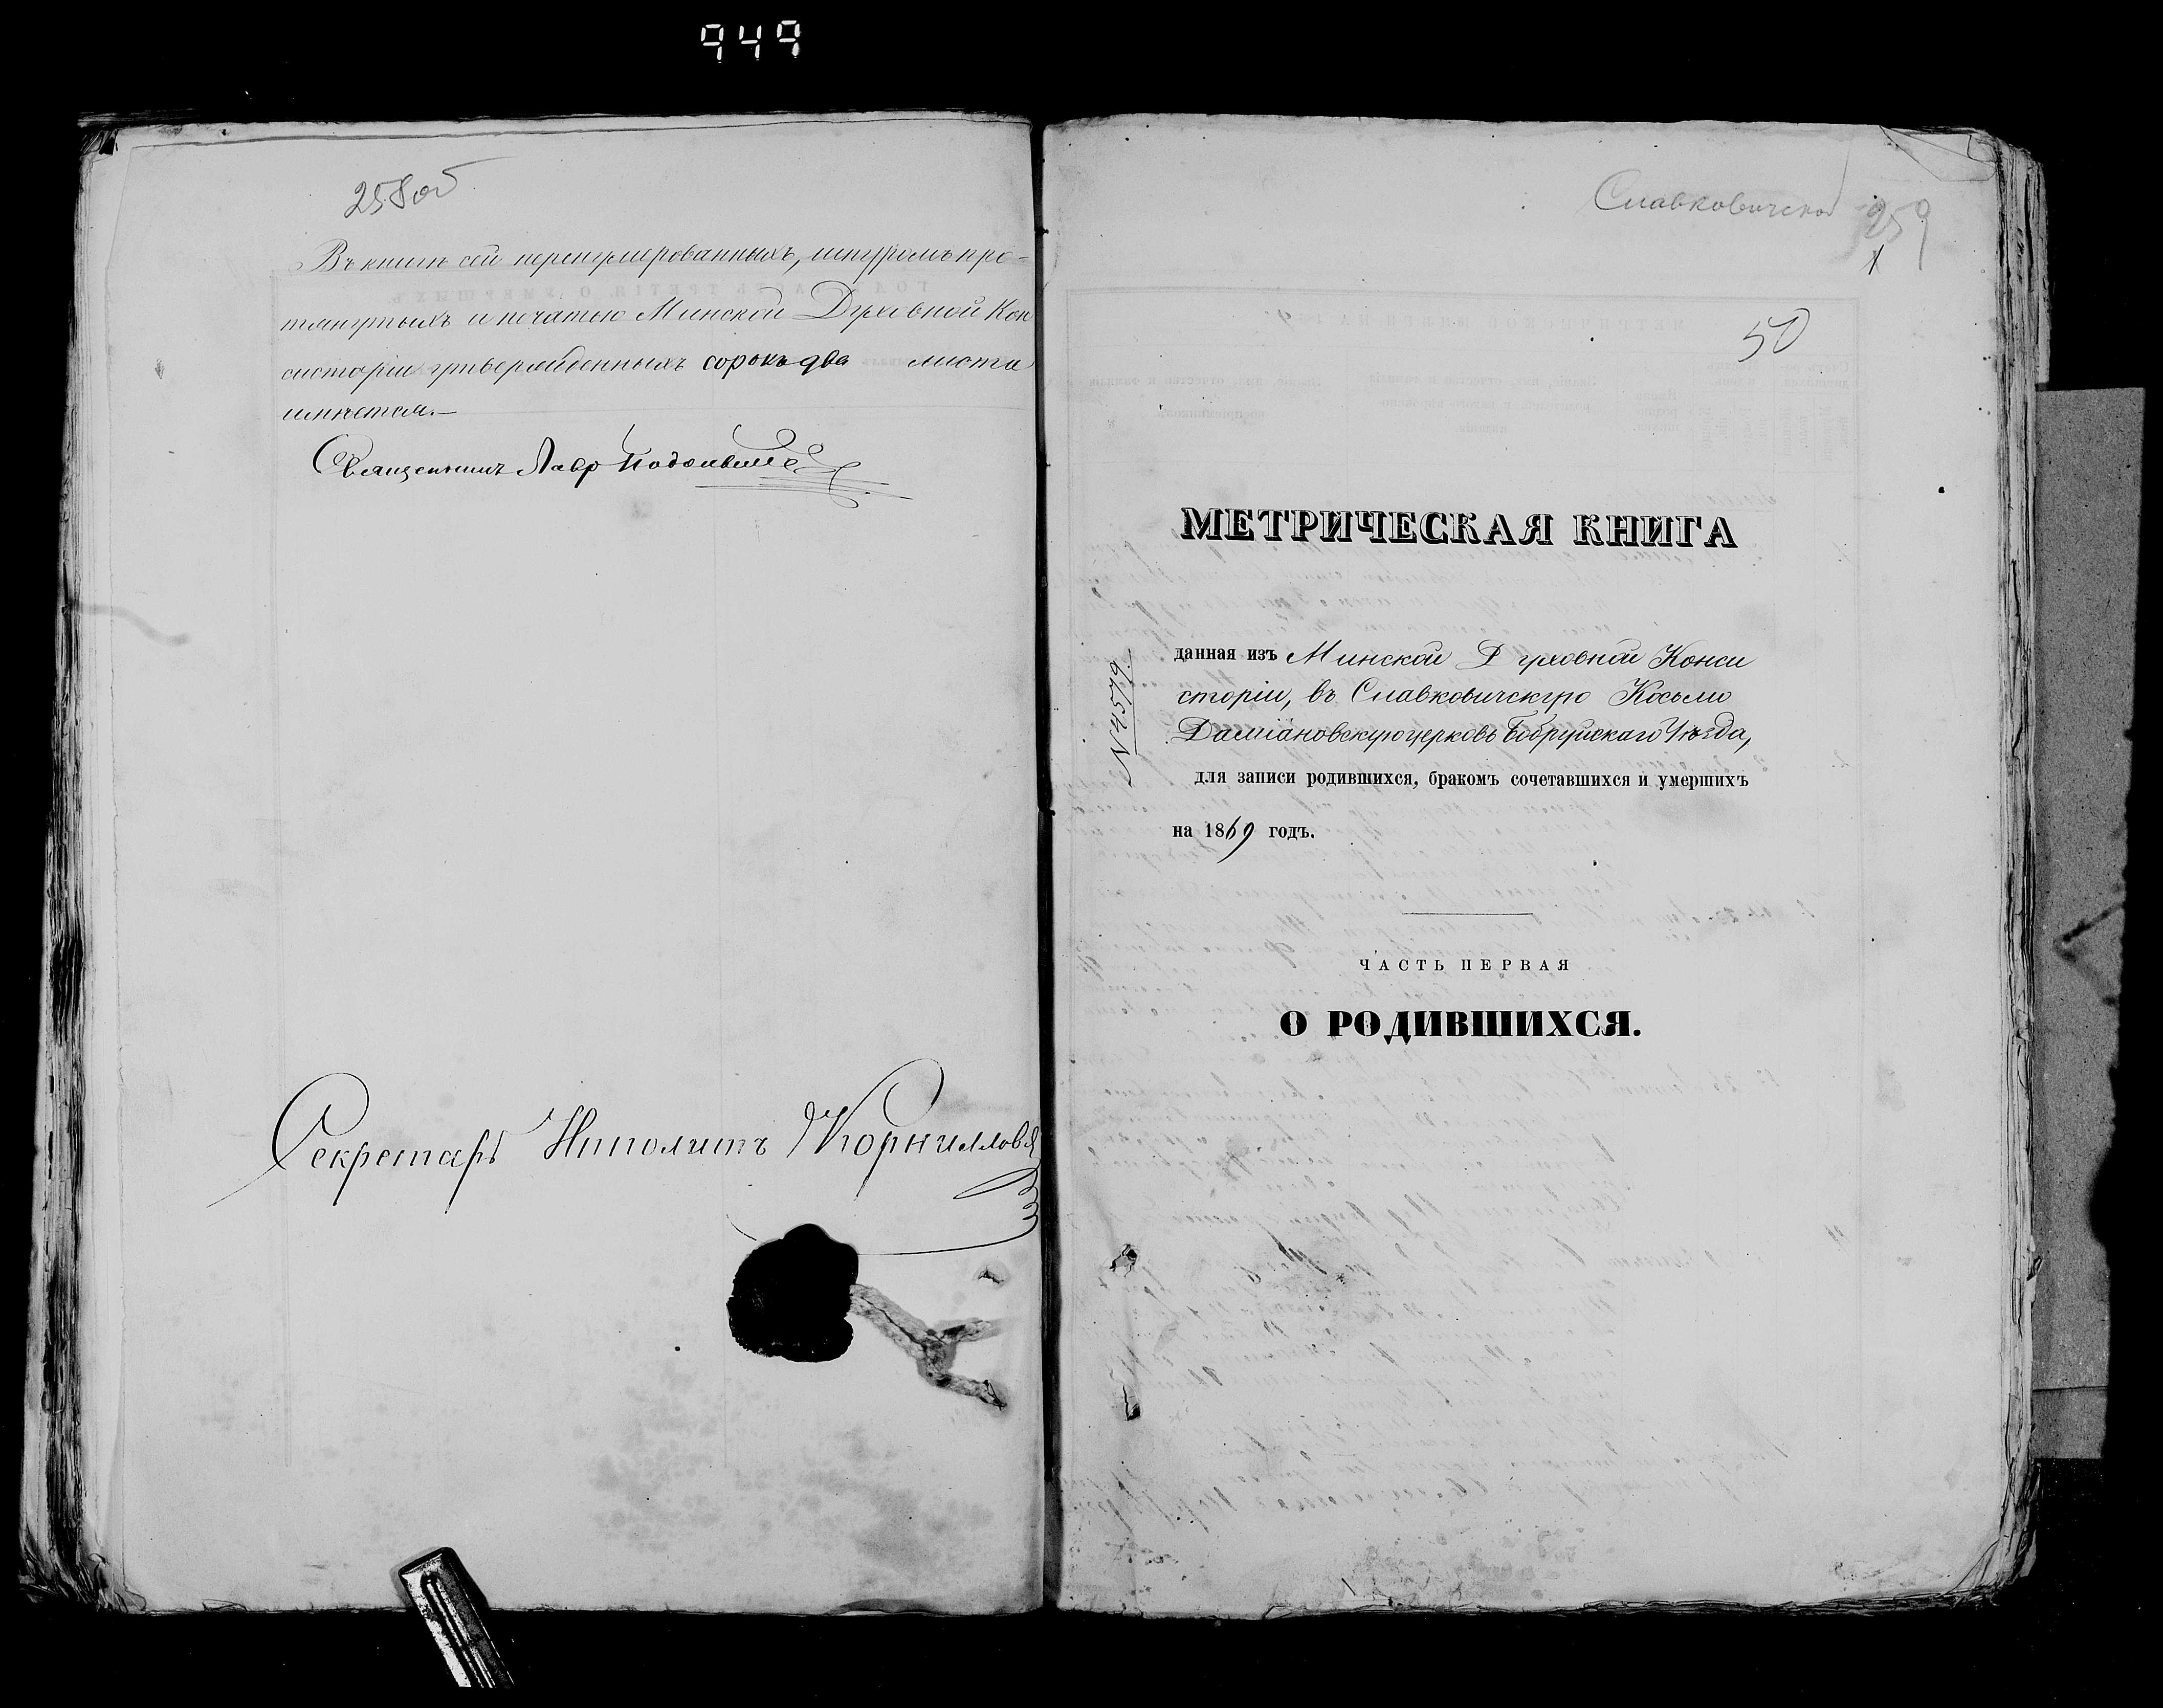 949
258об
Въ книгѣ сей перенумерованныхъ, шнуромъ про-
тянутыхъ и печатью Минской Духовной Кон
систоріи утвержденныхъ сорокъ два листа
имѣется.—
Священникъ Лавр
Секретарь Иполитъ Корниловъ
Славковичской 259
1
50
МЕТРИЧЕСКАЯ КНИГА
N 4579.
данная изъ Минской Духовной Конси
сторіи, въ Славковичскую Косьмо
Даміановскую церковь Бобруйскаго Уѣзда,
для записи родившихся, бракомъ сочетавшихся и умершихъ
на 1869 годъ.
ЧАСТЬ ПЕРВАЯ
О РОДИВШИХСЯ.